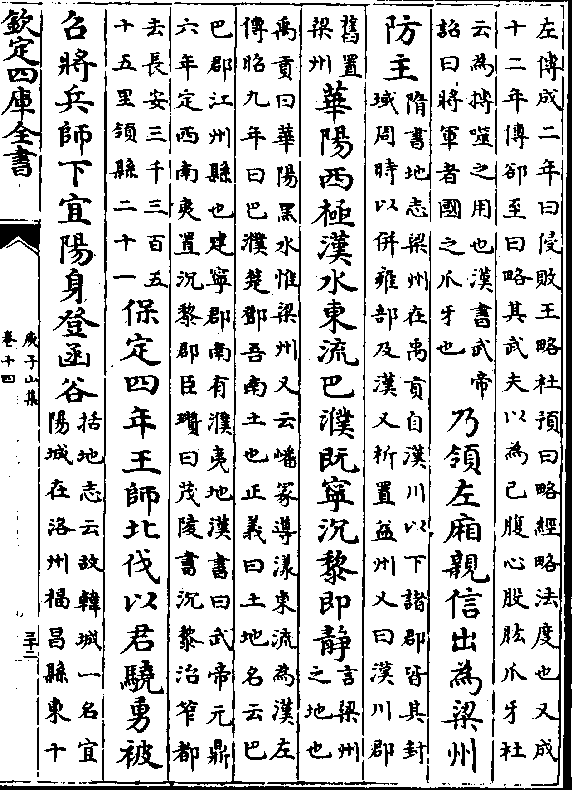 左傳成二年曰侵敗王略杜預曰略經略法度也又成
十二年傳郤至曰略其武夫以為已腹心股肱爪牙杜
云為搏噬之用也漢書武帝
詔曰將軍者國之爪牙也
乃領左廂親信出為梁州
防主
隋書地志梁州在禹貢自漢川以下諸郡皆其封
域周時以併雍部及漢又析置益州又曰漢川郡
舊置
梁州
華陽西極漢水東流巴濮既寧沉黎即靜
言梁州
之地也
禹貢曰華陽黑水惟梁州又云嶓冡導漾東流為漢左
傳昭九年曰巴濮楚鄧吾南土也正義曰土地名云巴
巴郡江州縣也建寧郡南有濮夷地漢書曰武帝元鼎
六年定西南夷置沉黎郡臣瓚曰茂陵書沉黎治筰都
去長安三千三百五
十五里領縣二十一
保定四年王師北伐以君驍勇被
召將兵師下宜陽身登函谷
括地志云故韓城一名宜
陽城在洛州福昌縣東十
欽定四庫全書
庾子山集
卷十四
三十二